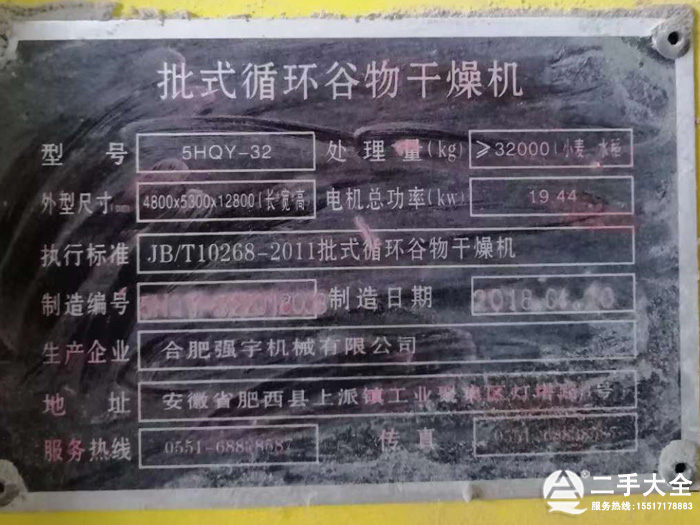 批式循环谷物干燥机
型号 5HQY-32 处理量(kg) ≥32000(小麦、水稻
外型尺寸mm 4800x5300x12800(长宽高) 电机总功率(kw) 19.44
执行标准 JB/T10268-2011批式循环谷物干燥机
制造编号 制造日期
生产企业 合肥强宇机械有限公司
地址 安徽省肥西县上派镇工业聚集区灯塔路 号
服务热线 传真
二手大全
服务热线:15517178883